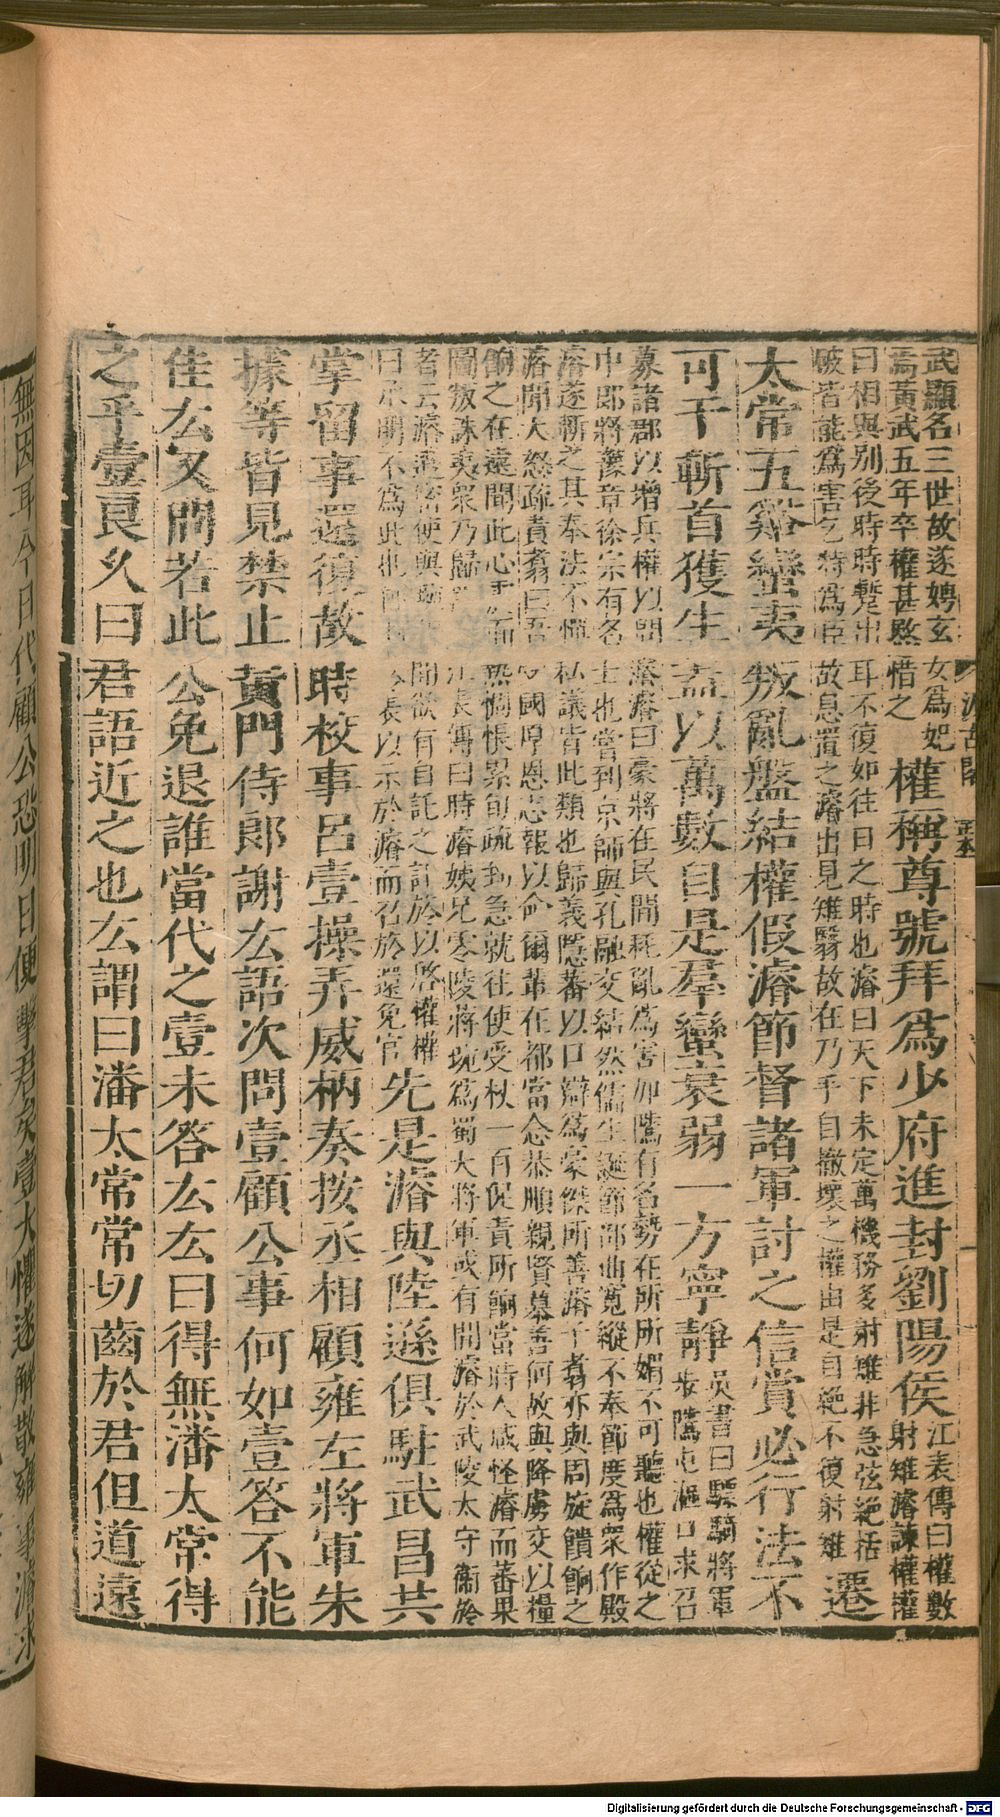 武顯名三世故遂娉玄女為妃
焉黃武五年卒權甚愍惜之
權稱尊號拜為少府進封劉陽侯
江表傳曰權數
射雉濬諫權權
曰相與別後時時蹔出耳不復如往日之時也濬曰天下未定萬機務多射雉非急弦絕括
破皆能為害乞特為臣故息置之濬出見雉翳故在乃手自撤壞之權由是自絕不復射雉
遷
太常五谿蠻夷叛亂盤結權假濬節督諸軍討之信賞必行法不
可干斬首獲生蓋以萬數自是羣蠻衰弱一方寧靜
吳書曰驃騎將軍
步隲屯漚口求召
募諸郡以增兵權以問濬濬曰豪將在民間耗亂為害加隲有名勢在所所媚不可聽也權從之
中郎將豫章徐宗有名士也嘗到京師與孔融交結然儒生誕節部曲寬縱不奉節度為衆作殿
濬遂斬之其奉法不憚私議皆此類也歸義隱蕃以口辯為豪傑所善濬子翥亦與周旋饋餉之
濬聞大怒疏責翥曰吾國厚恩志報以命爾輩在都當念恭順親賢慕善何故與降虜交以糧
餉之在遠聞此心面熱惆悵累旬疏到急就往使受杖一百促責所餉當時人咸怪濬而蕃果
圖叛誅夷衆乃歸表傳曰時濬姨兄零陵蔣琬為蜀大將軍或有間濬於武陵太守衞旍
者云濬遣密使與聞欲有自託之計旍以啓權權
曰承明不為此也表以示於濬而召旍還免官
先是濬與陸遜俱駐武昌共
掌留事還復故時校事呂壹操弄威柄奏按丞相顧雍左將軍朱
據等皆見禁止黃門侍郎謝厷語次問壹顧公事何如壹答不能
佳厷又問若此公免退誰當代之壹未答厷厷曰得無潘太常得
之乎壹良久曰君語近之也厷謂曰潘太常常切齒於君但道遠
無因耳今日代顧公恐明日便擊君矣壹大懼遂解散雍事濬求
Digitalisierung gefördert durch die Deutsche Forschungsgemeinschaft - DFG